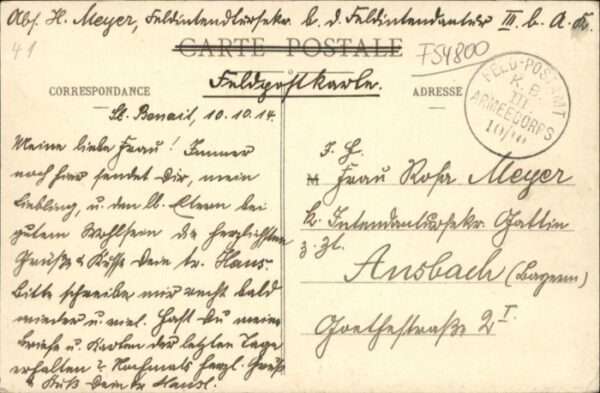 Abs. H. Meyer, Feldintendtrsekr. b. d. Feldintendantur III. b. A. K.
41
CARTE POSTALE
FS4800
Feldpostkarte.
CORRESPONDANCE
ADRESSE
FELD-POSTAMT
K. B.
III.
ARMEECORPS
St. Benoit, 10.10.14.
Meine liebe Frau! Immer
noch hier sendet Dir, mein
Liebling, u. den lb. Eltern bei
gutem Wohlsein die herzlichsten
Grüße & Küsse Dein tr. Hans.
Bitte schreibe mir recht bald
wieder u. viel. Hast Du meine
Briefe u. Karten der letzten Tage
erhalten? Nochmals herzl. Gruß
& Kuß Dein tr. Hansl.
Frau Rosa Meyer
k. Intendantursekr. Gattin
z. Zt.
Ansbach (Bayern)
Goethestraße 2 I.